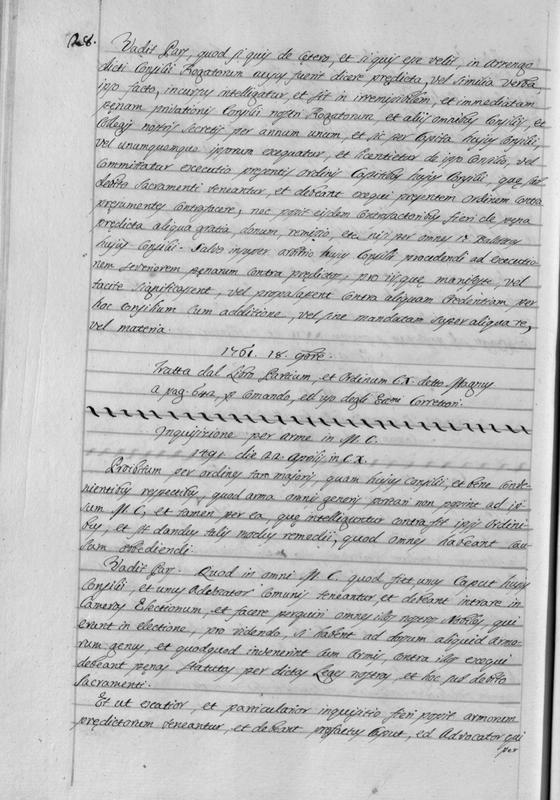 28.
Vadit Pars, quod si quis de cetero, et si quis esse velit, in Arrengo
dicti Consilij Rogatorum ausus fuerit dicere predicta, vel similia verba,
ipso facto, incursus intelligatur, et sit in irremisibilem, et immediatam
penam privationis Consilij nostri Rogatorum, et alijs omnibus Consilijs, et
Collegijs nostris Secretis per annum unum, et sic per Capita hujus Consilij
vel unumquemque ipsorum exequatur, et licentietur de ipso Consilio, vel
Committatur executio presentis ordinis Capitibus hujus Consilij, que sub
debito Sacramenti teneantur, et debeant exequi presentem Ordinem contra
presumentes Contrafacere, nec possit ejsdem Contrafactoribus fieri de pena
predicta aliqua gratia, donum, remissio, etc. nisi per omnes Balottas
hujus Consilij. Salvo insuper arbitrio hujus Consilij procedendi ad executio-
nem severiorem penarum contra predictos, pro ijs que manifeste, vel
tacite significassent, vel propalassent contra aliquam Credentiam per
hoc Consilium cum additione, vel sine mandatam super aliqua re,
vel materia.
1761. 18. 9bre.
Tratta dal Libro Partium, et Ordinum C.X. detto Magnus
a pag. 642, per Comando, ed uso degli Eccmi Correttori.
Inquisizione per arme in M. C.
1491 die 22. Aprilis in C.X.
Proibitum per ordines tam majoris, quam hujus Consilij, et bene Conve-
nientibus respectibus, quod arma omnis generis portari non possint ad ip
sum M. C., et tamen per ea, que intelliguntur contrafit ipsis ordini-
bus, et sit dandus talis modus remedij, quod omnes habeant cau-
sam obbediendi.
Vadit Pars. Quod in omni M. C. quod fiet unus Caput hujus
Consilij, et unus Advocator Comunis teneantur, et debeant intrare in
Cameras Electionum, et facere perquiri omnes illos nostros Nobiles, qui
erunt in electione, pro videndo, si habent ad dorsum aliquid Armo-
rum genus, et quodquod invenerint cum Armis, contra illos exequi
debeant penas statutas per dictas Leges nostras, et hoc sub debito
Sacramenti.
Et ut cautior, et particularior inquisitio fieri possit armorum
predictorum teneantur, et debeant prefactus Caput, ed Advocator qui
per